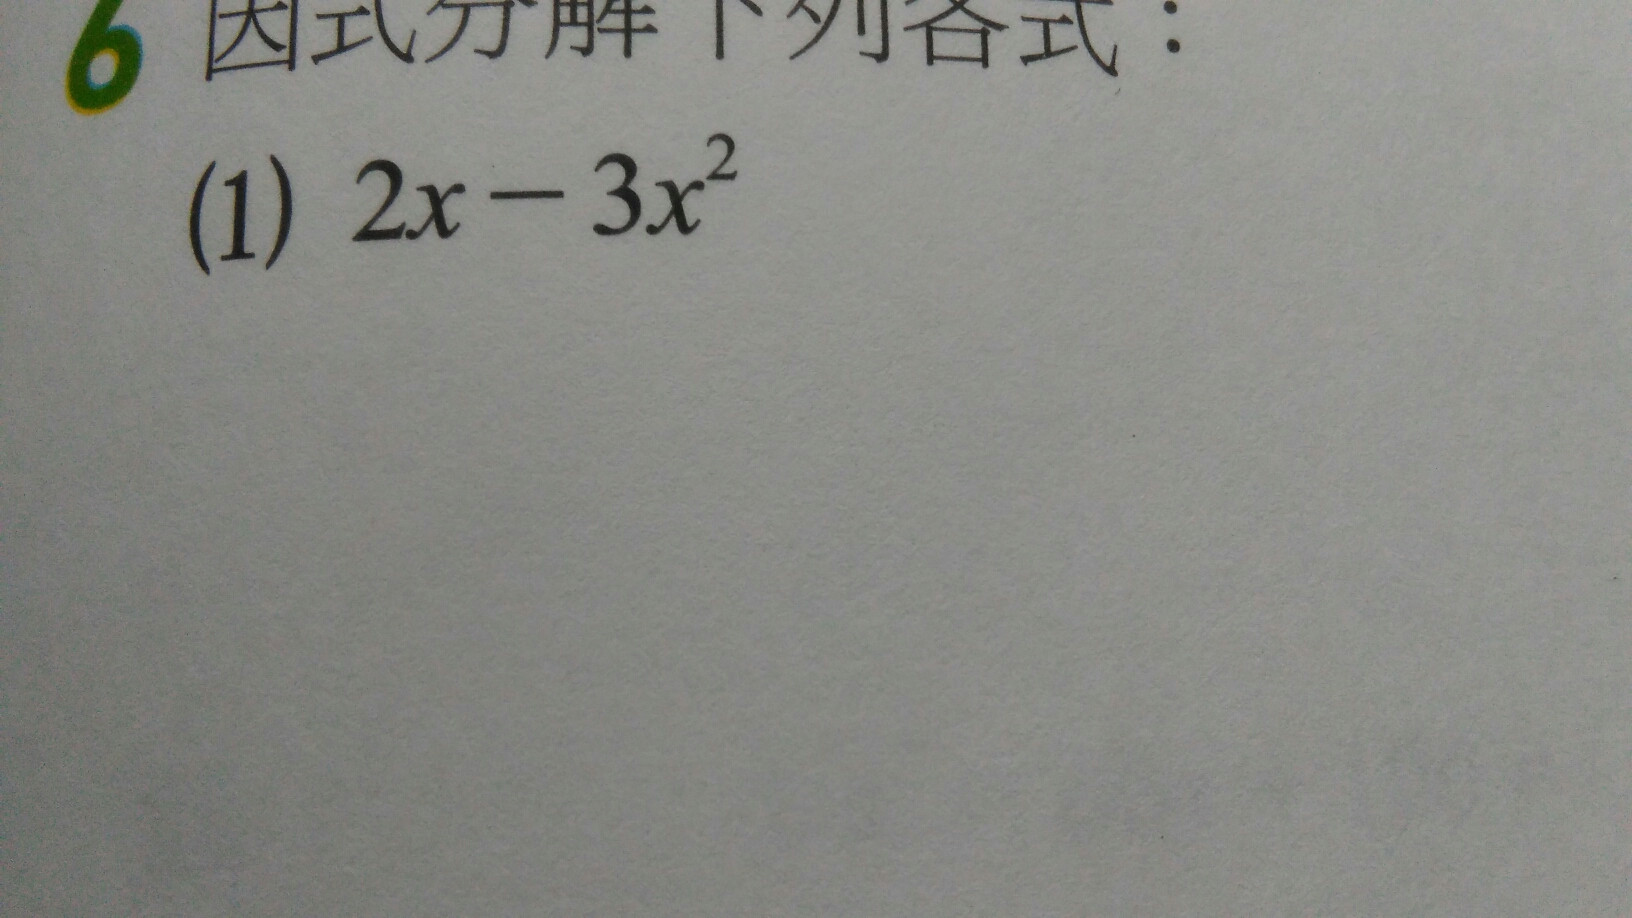 6 因式分解下列各式：
(1) 2x − 3x²